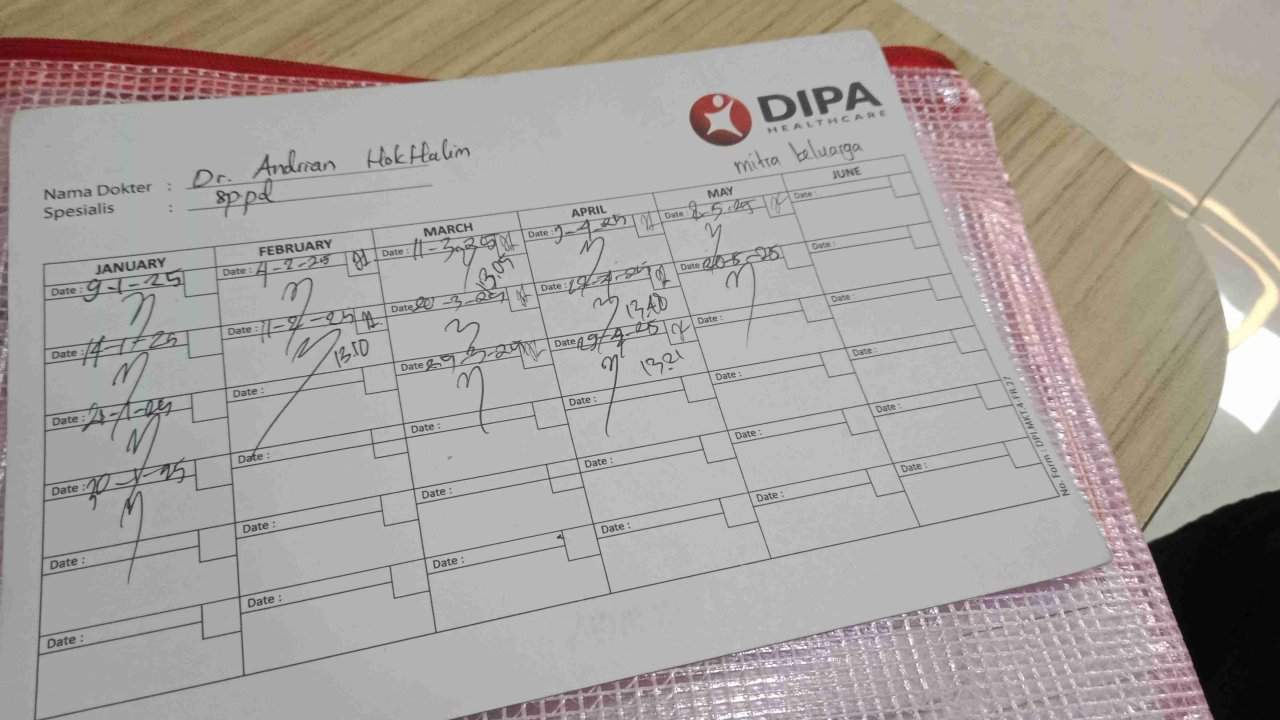 DIPA
HEALTHCARE
mitra keluarga
Nama Dokter : Dr. Andrian HokHalim
Spesialis : SPPd
JANUARY FEBRUARY MARCH APRIL MAY JUNE
Date : 9-1-25 Date : 4-2-25 Date : 11-3-25 13.05 Date : Date : 2-5-25 Date :
Date : 14-1-25 Date : 11-2-25 13.10 Date : 20-3-25 Date : 13.40 Date : 20-5-25 Date :
Date : 21-1-25 Date : Date : Date : 29-4-25 13.21 Date : Date :
Date : 30-1-25 Date : Date : Date : Date : Date :
Date : Date : Date : Date : Date : Date :
Date : Date : Date : Date : Date : Date :